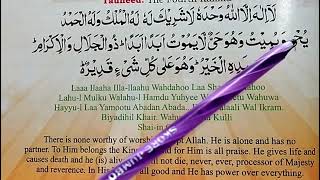 Tauheed: The Fourth
لَآ اِلٰهَ اِلَّا اللهُ وَحْدَهٗ لَا شَرِيْكَ لَهٗ لَهُ الْمُلْكُ وَلَهُ الْحَمْدُ
يُحْىٖ وَيُمِيْتُ وَهُوَ حَىٌّ لَّا يَمُوْتُ اَبَدًا اَبَدًا ذُو الْجَلَالِ وَالْاِكْرَامِ
بِيَدِهِ الْخَيْرُ وَهُوَ عَلٰى كُلِّ شَىْءٍ قَدِيْرٌ
Laaa Ilaaha Illa-llaahu Wahdahoo Laa
Lahu-l Mulku Walahu-l Hamdu Yuhyee
Hayyu-l Laa Yamootu Abadan Wal Ikram.
Biyadihil Khair. Wahuwa Kulli
Shai-in
There is none worthy of worship except Allah. He is alone and has no
partner. To Him belongs the Kingdom and for Him is all praise. He gives life and
causes death and He (is) alive. will not die, never, ever, processor of Majesty
and reverence. In His is all good and He has power over everything.